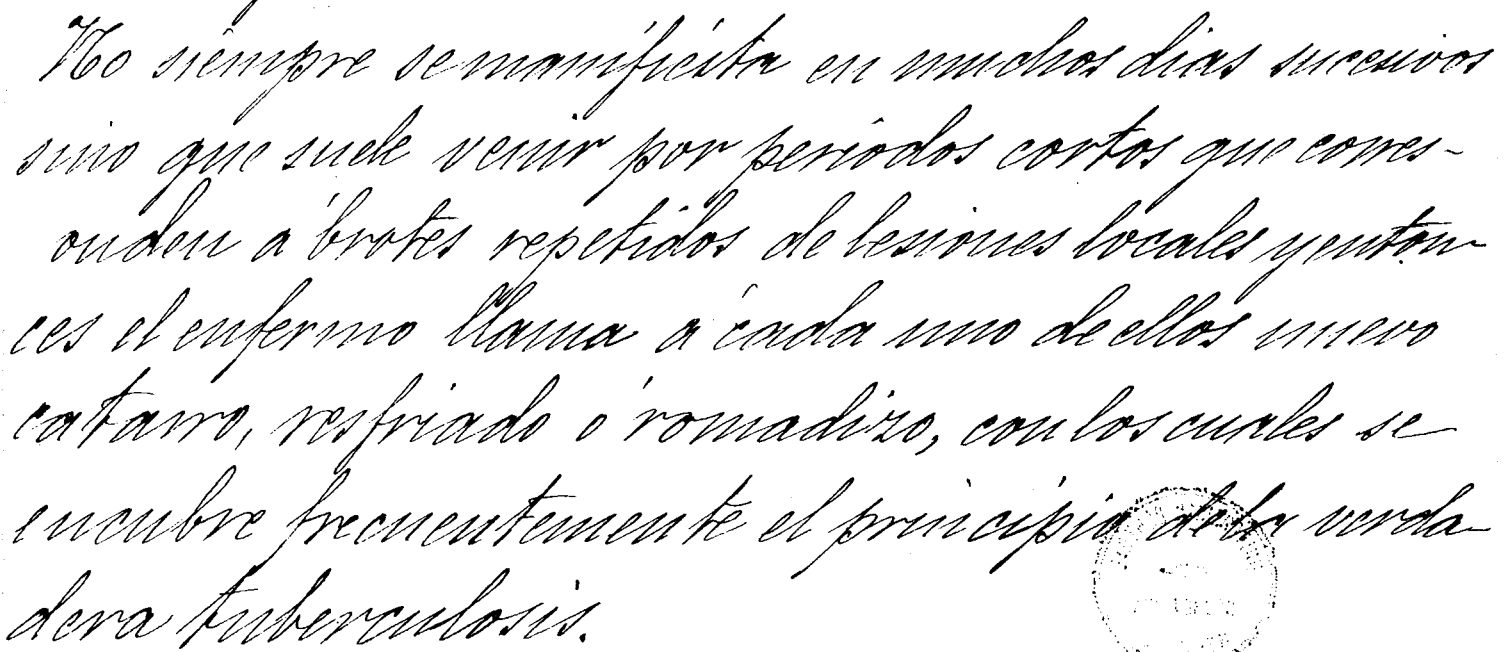 No siempre se manifiesta en muchos dias sucesivos
sino que suele venir por periodos cortos que corres-
onden á brotes repetidos de lesiones locales y enton
ces el enfermo llama á cada uno de ellos nuevo
catarro, resfriado ó romadizo, con los cuales se
encubre frecuentemente el principio de la verda-
dera tuberculosis.